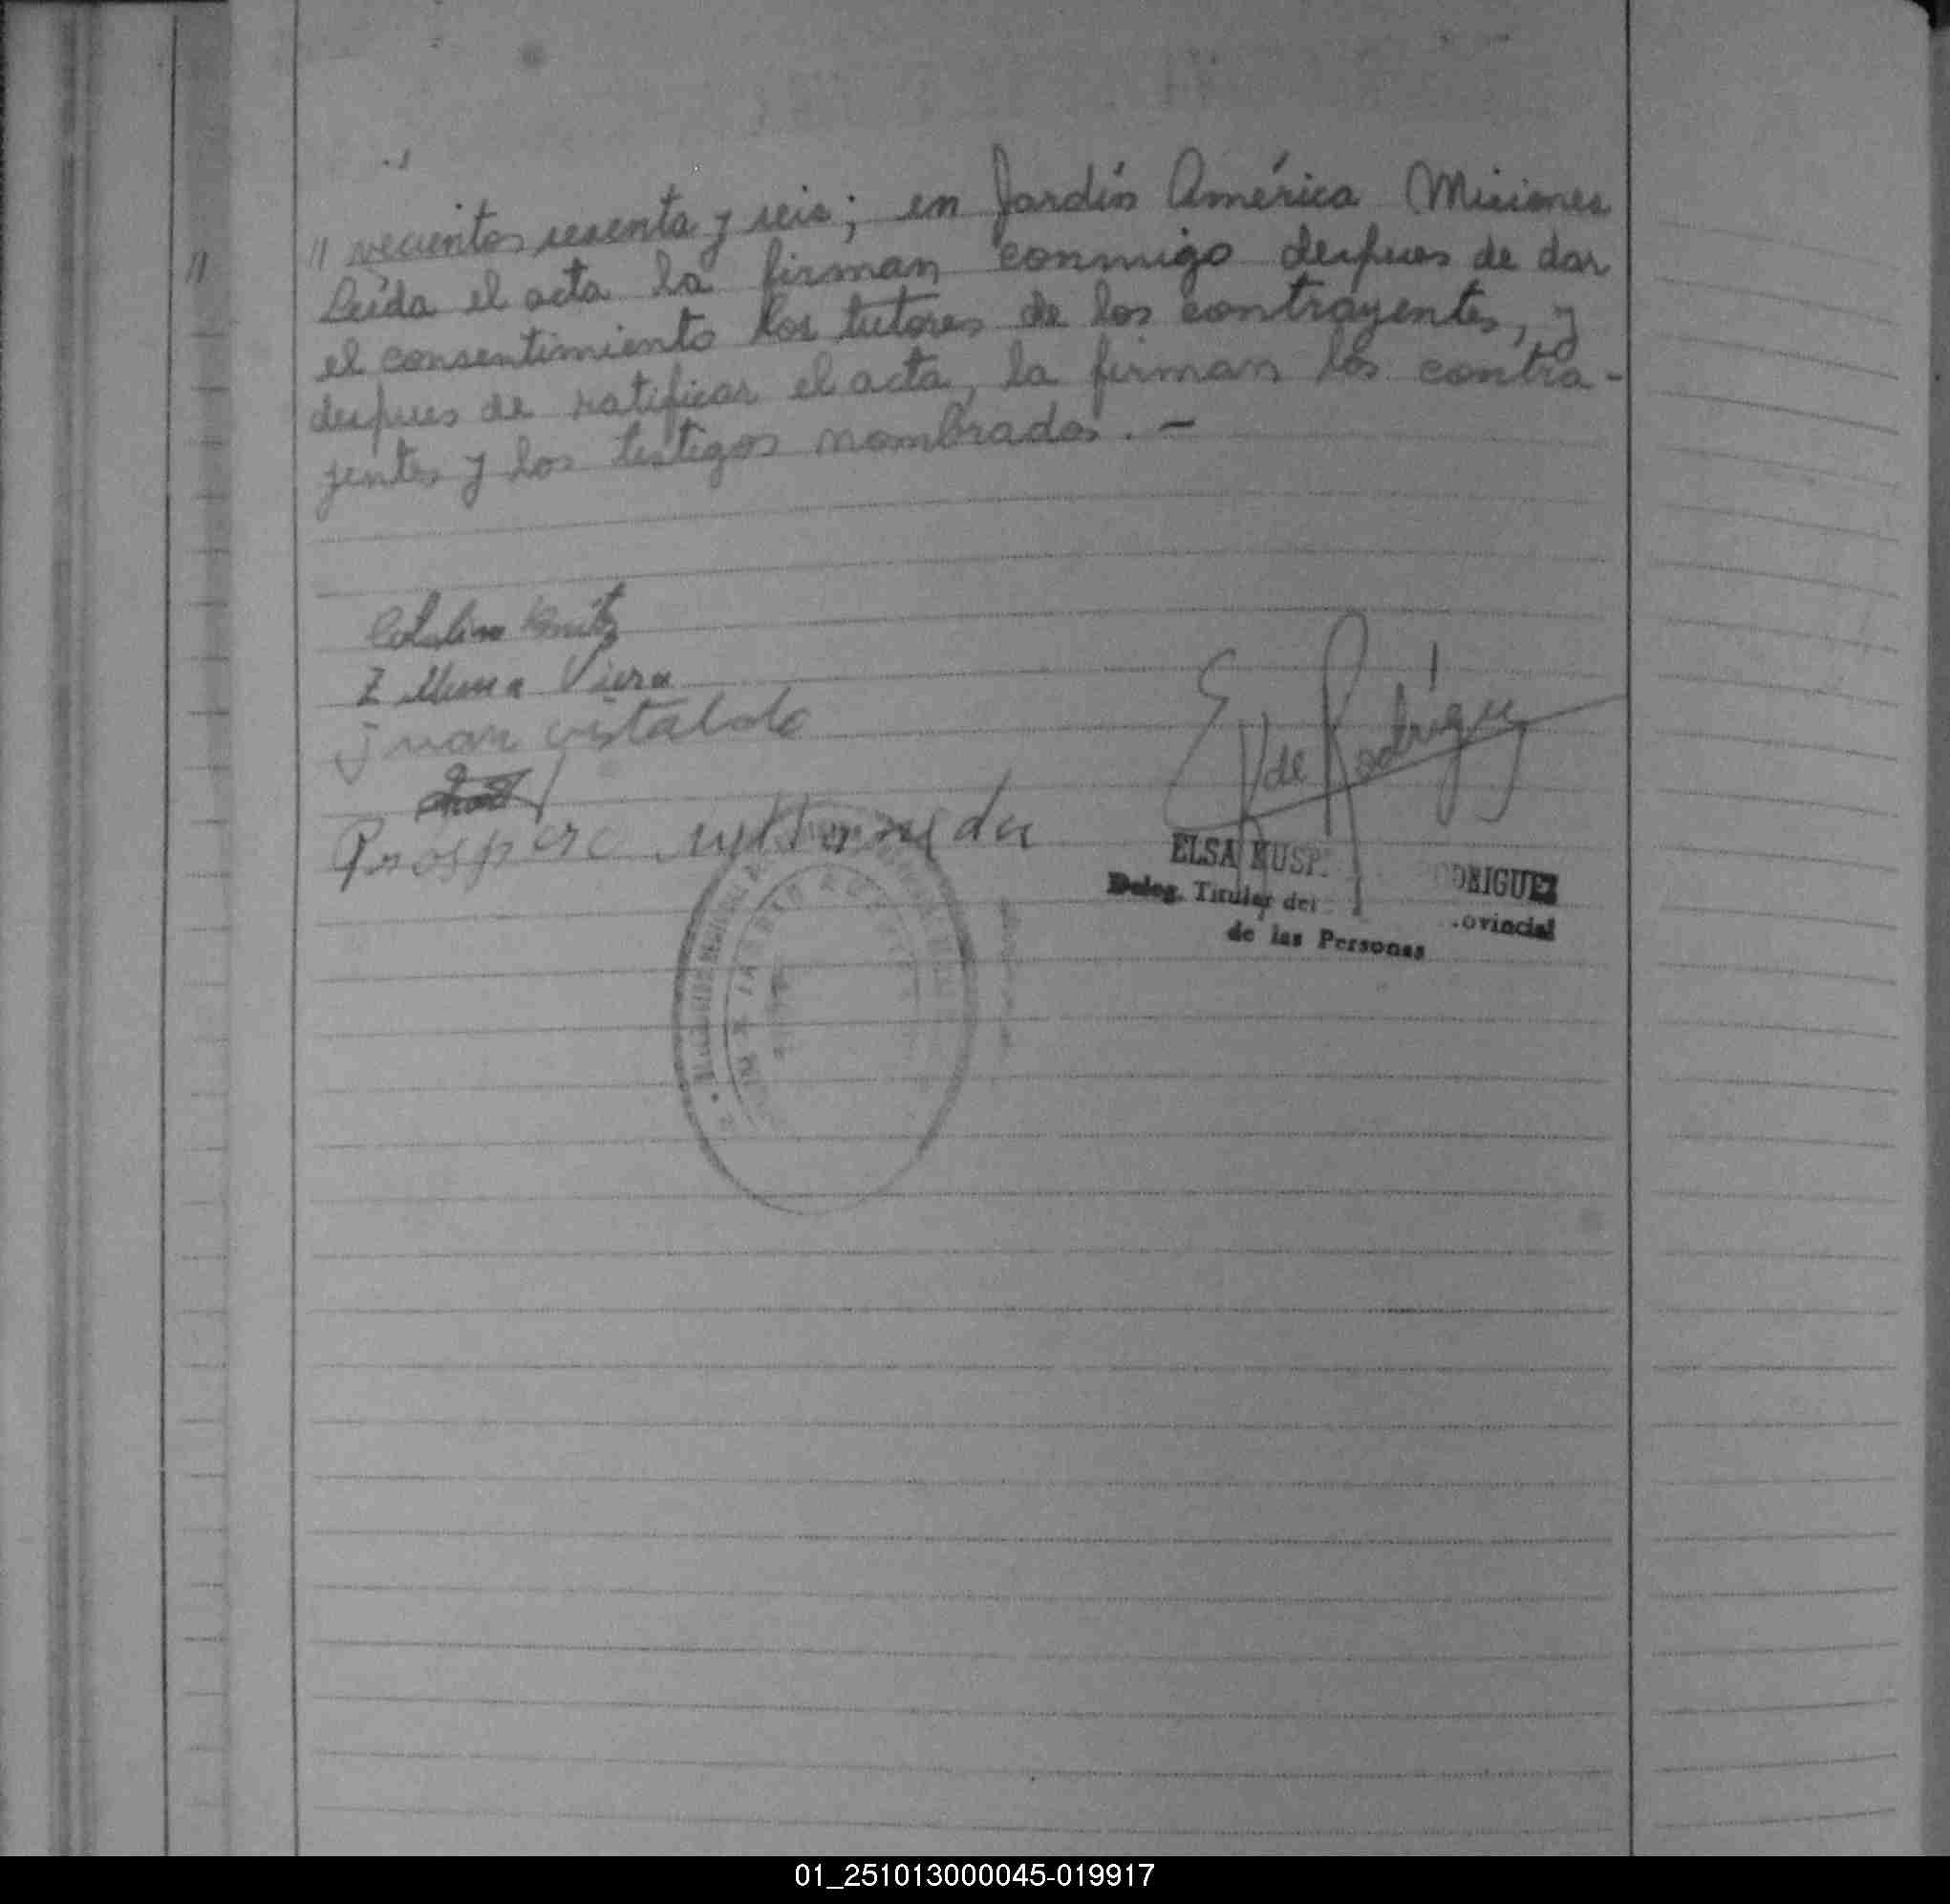 // vecientos sesenta y seis; en Jardín América Misiones
//
Leída el acta la firman conmigo despues de dar
el consentimiento los tutores de los contrayentes, y
despues de ratificar el acta, la firman los contra-
yentes y los testigos nombrados. -
Viera
Juan
Prospero
E R de Rodríguez
ELSA RODRIGUEZ
Deleg. Titular del
de las Personas
01_251013000045-019917